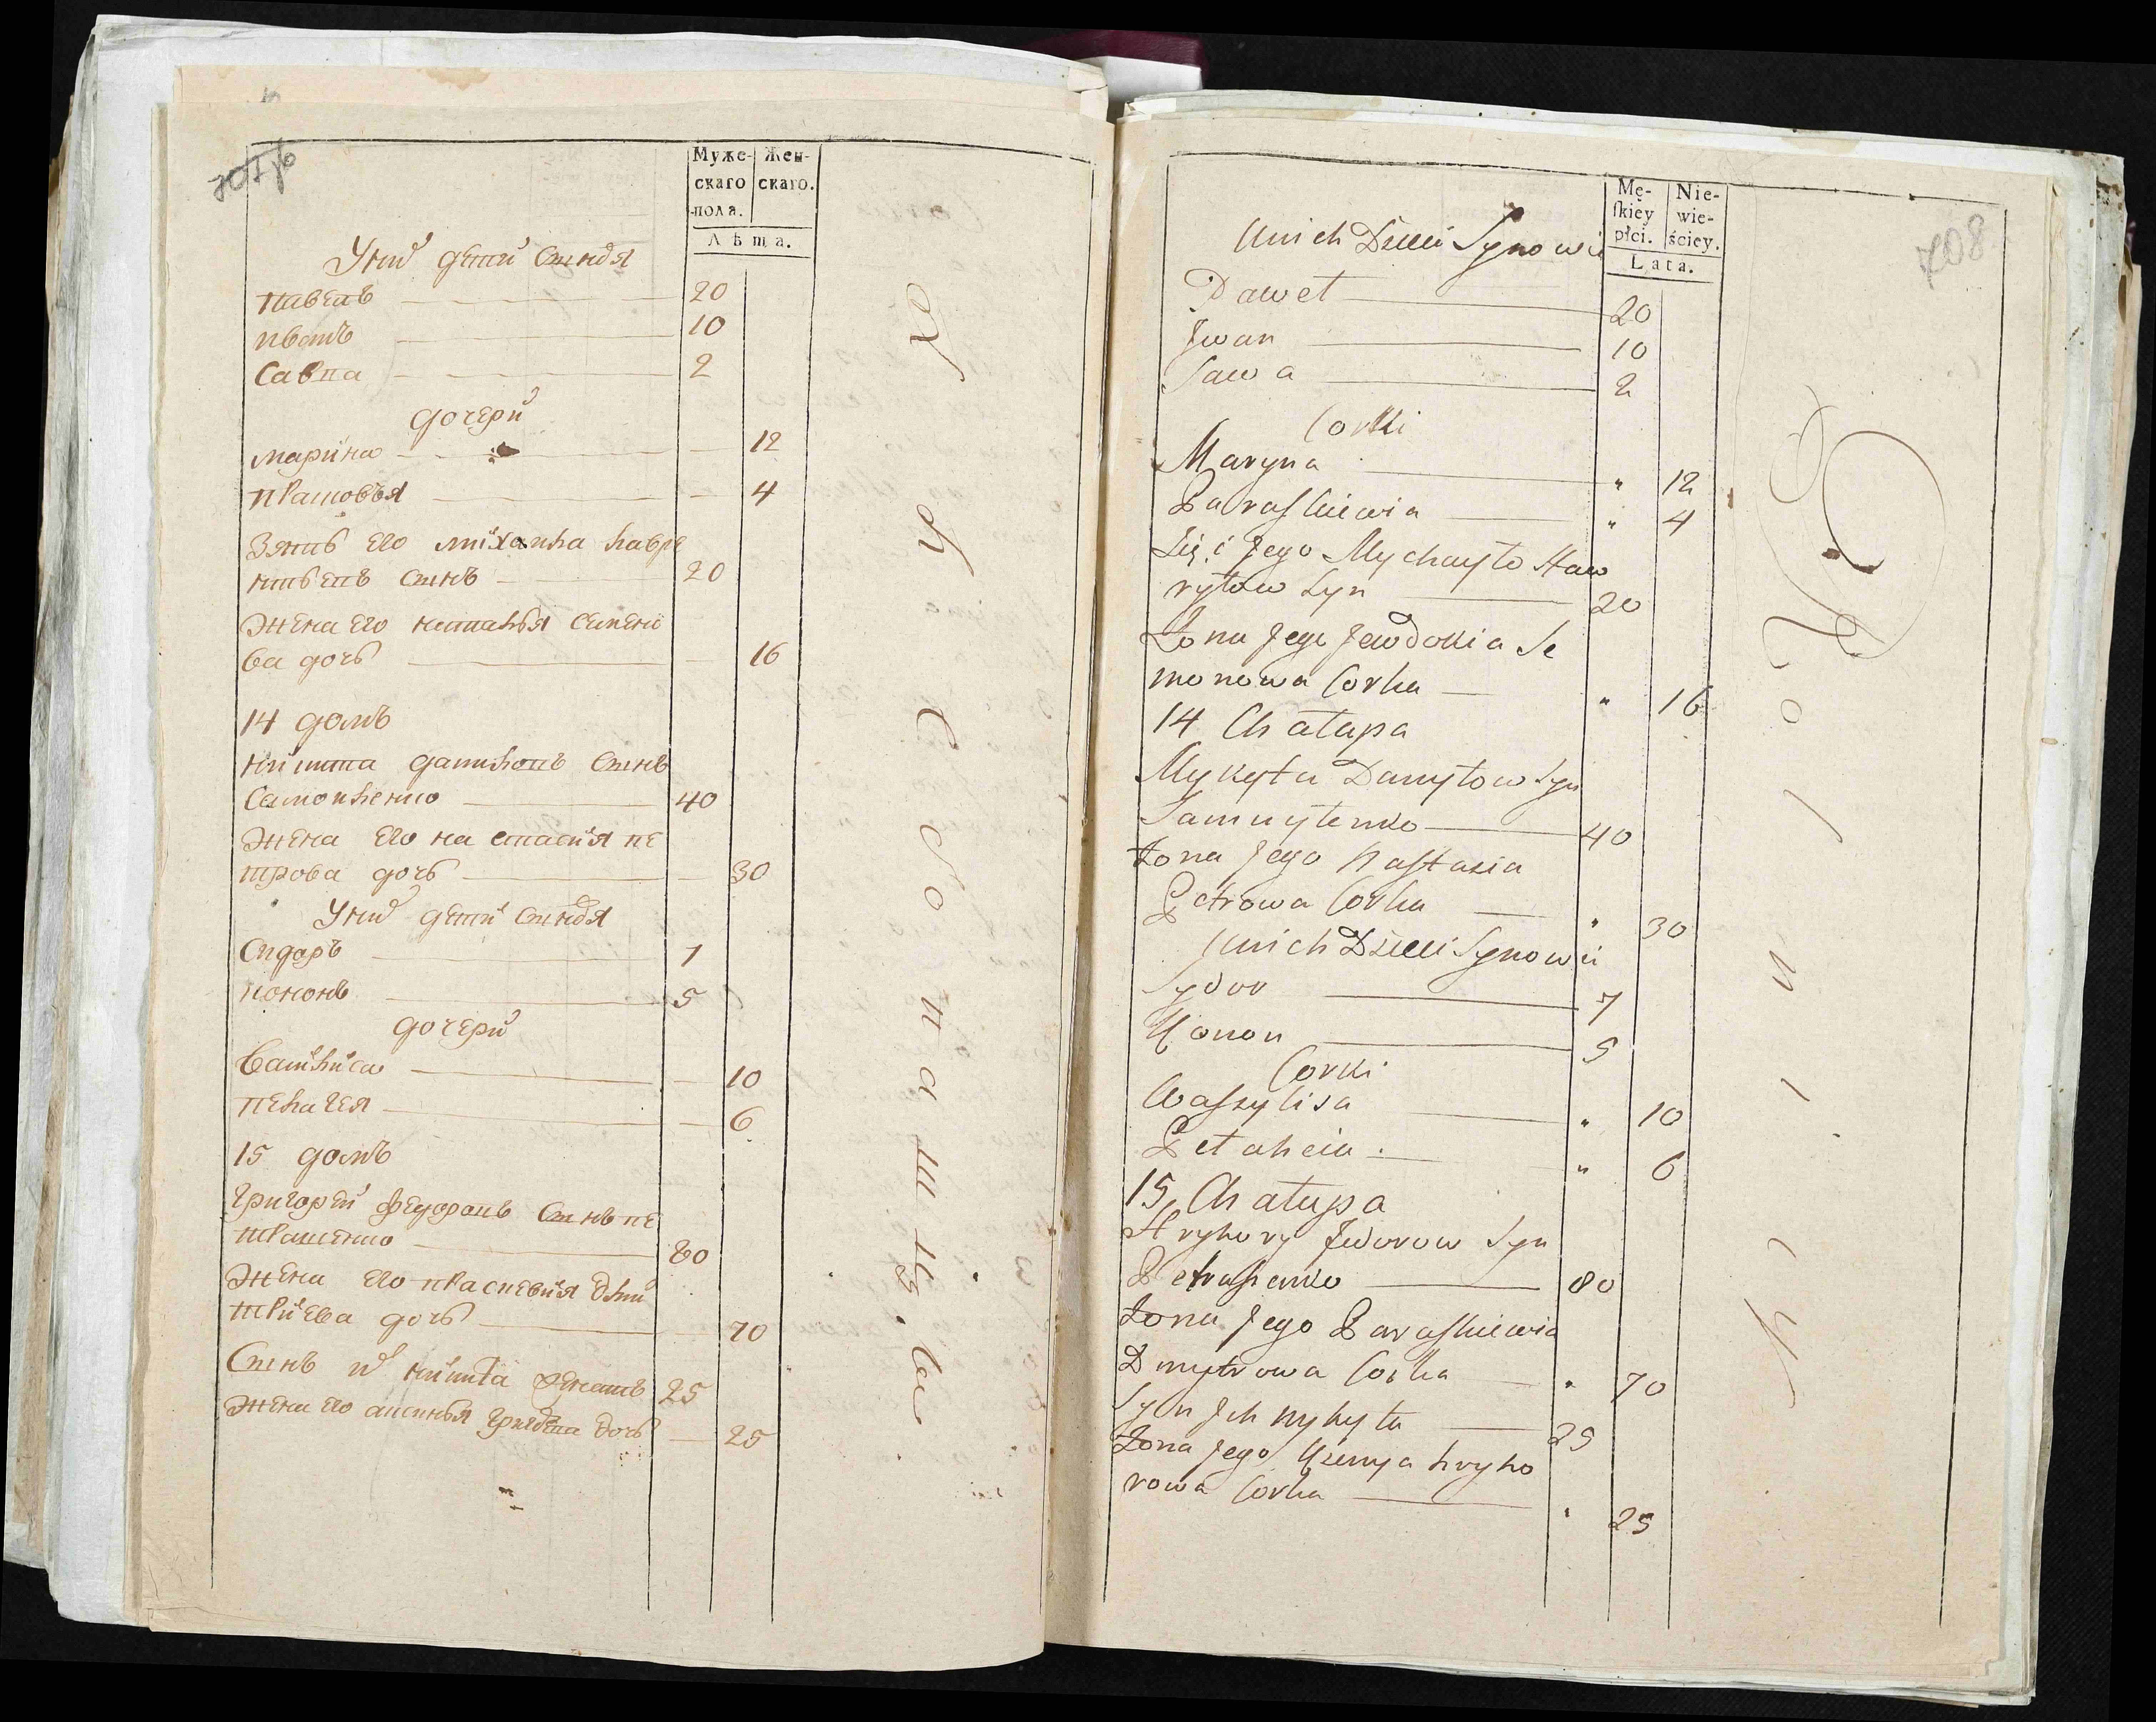 Муже-
скаго
пола.
Жен-
скаго.
Лѣта.
У них дети Сыновя
павелъ 20
иванъ 10
Савка 2
дочери
марина 12
прасковья 4
Зять его михаила гаври
ловъ Сынъ 20
жена его Семено
ва дочь 16
14 домъ
никита даниловъ Сынъ
40
жена его настасия пе
трова дочь 30
У них дети Сыновя
Сидоръ 7
кононъ 5
дочери
Василиса 10
пелагея 6
15 домъ
Григорей федоровъ Сынъ пе
трашенко 80
жена его праскевия дми
триева дочь 70
Сынъ их никита женатъ 25
жена его аксинья дочь 25
708
Mę-
ſkiey
płci.
Nie-
wie-
ściey.
Lata.
Unich Dzieci Synowie
Paweł 20
Jwan 10
Sawa 2
Corki
Maryna " 12
Paraſkiewia " 4
Zięć Jego Mychayło Haw
ryłow Syn 20
Zona Jego Jewdokia Se
monowa Corka " 16
14 Chałupa
Mykyta Danyłow Syn
Samuylenko 40
Zona Jego Naſtazia
Petrowa Corka " 30
Unich Dzieci Synowie
Sydor 7
Konon 5
Corki
Waſzylisa " 10
Pelaheia " 6
15 Chałupa
Hryhory Fedorow Syn
Petraſzenko 80
Zona Jego Paraſkiewia
Dmytrowa Corka " 70
Syn Jch Mykyta 25
Zona Jego Xzenya hryho
rowa Corka " 25